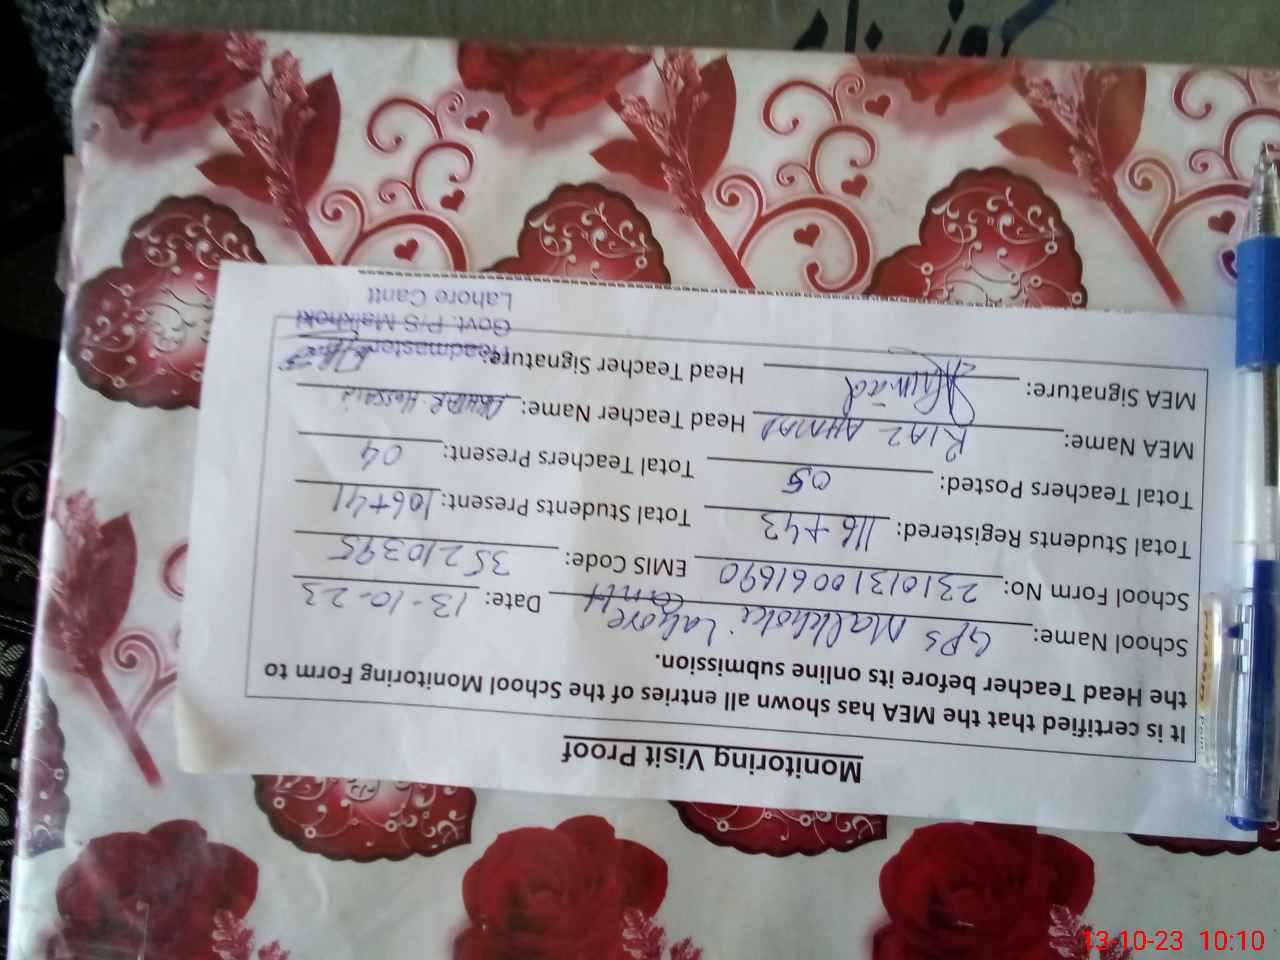 Monitoring Visit Proof
It is certified that the MEA has shown all entries of the School Monitoring Form to
the Head Teacher before its online submission.
School Name: GPS Malkhoki Lahore Cantt Date: 13-10-23
School Form No: 23101310061690 EMIS Code: 35210395
Total Students Registered: 116+43 Total Students Present: 106+41
Total Teachers Posted: 05 Total Teachers Present: 04
MEA Name: RIAZ AHMAD Head Teacher Name: AKHTAR HUSSAIN
MEA Signature: Ahmad Head Teacher Signature:
Headmaster
Govt. P/S Malkhoki
Lahore Cantt
13-10-23 10:10